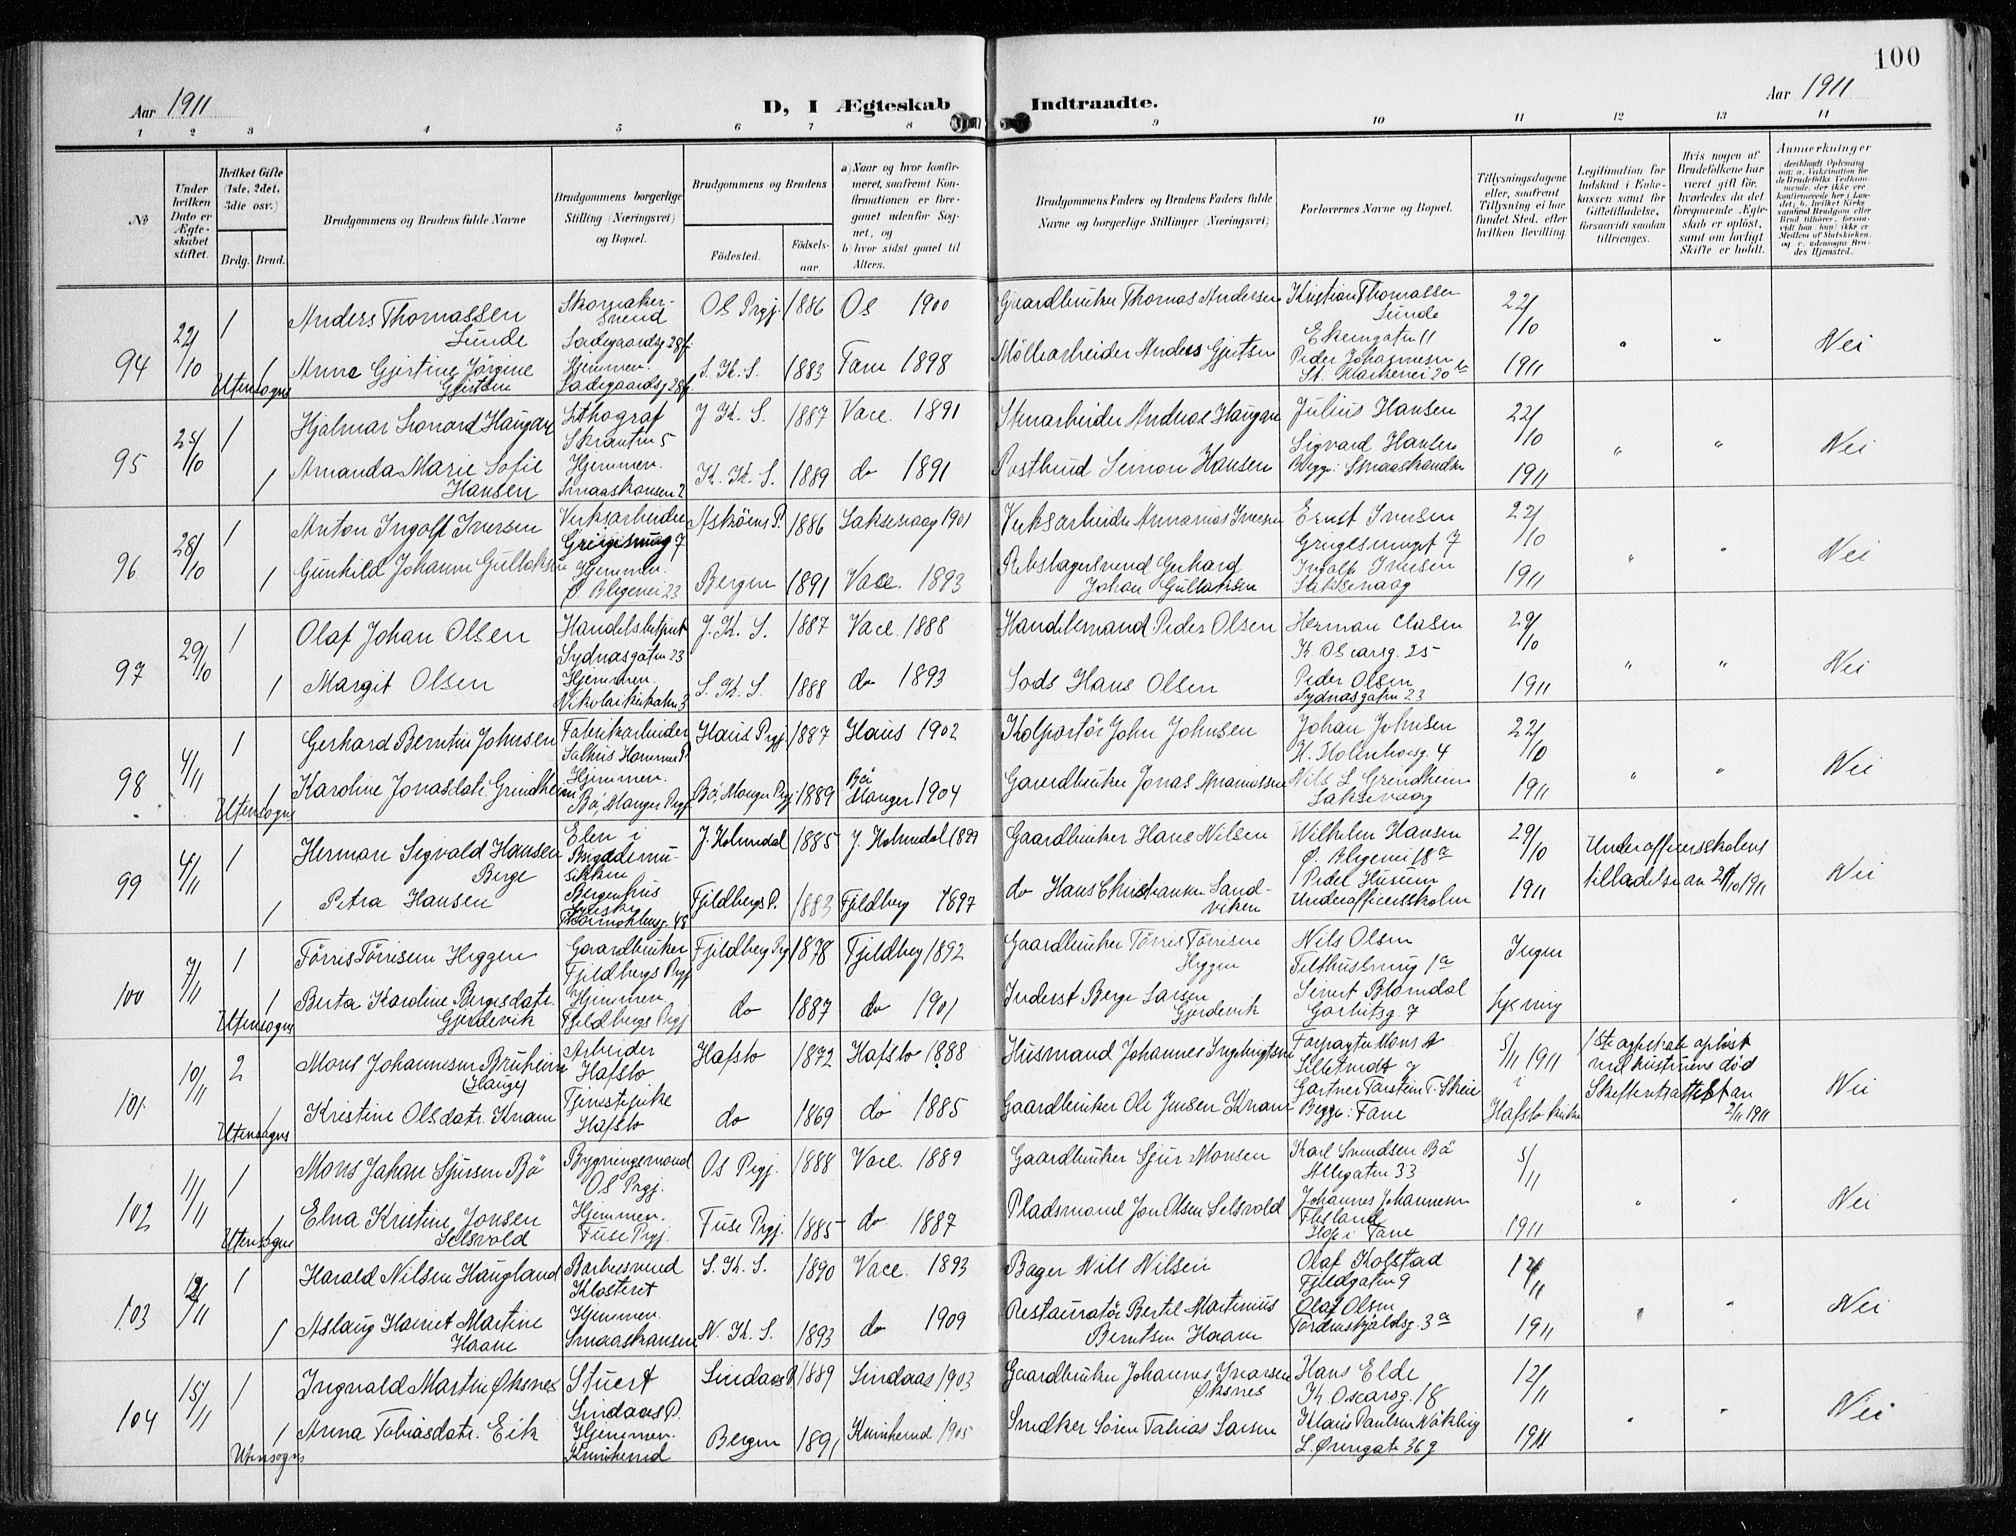 100
Aar 1911
D, I Ægteskab Indtraadte.
Aar 1911
1 2 3 4 5 6 7 8 9 10 11 12 13 14
№
Under hvilken Dato er Ægteskabet stiftet.
Hvilket Gifte (1ste, 2det, 3die osv.)
Brdg. Brud.
Brudgommens og Brudens fulde Navne
Brudgommens borgerlige Stilling (Næringsvei) og Bopæl.
Brudgommens og Brudens
Födested.
Födsels-aar.
a) Naar og hvor konfirmeret, saafremt Konfirmationen er foregaaet udenfor Sognet, og
b) hvor sidst gaaet til Alters.
Brudgommens Faders og Brudens Faders fulde Navne og borgerlige Stillinger (Næringsvei)
Forlovernes Navne og Bopæl.
Tillysningsdagene eller, saafremt Tillysning ei har fundet Sted, efter hvilken Bevilling.
Legitimation for Indskud i Enkekassen samt for Giftetilladelse, forsaavidt saadan tiltrænges.
Hvis nogen af Brudefolkene har været gift før, hvorledes da det foregaaende Ægteskab er opløst, samt om lovligt Skifte er holdt.
Anmærkninger
94 22/10 1 Anders Thomassen Sunde Skomakersvend Ladegaardsg 28f Os Prgj. 1886 Os 1900 Gaardbruker Thomas Andersen Kristian Thomassen Sunde Ekrengaten 11 22/10 " " Nei
1 Utensogns Anne Gjertine Jørgine Gjertsen Hjemmev. Ladegaardsg 28f S. K. S. 1883 Fane 1898 Møllearbeider Anders Gjertsen Peder Johannesen St. Markevei 20 b 1911
95 25/10 1 Hjalmar Leonard Haugan Lithograf Skranten 5 J K. S. 1887 Vace 1891 Stenarbeider Andreas Haugan Julius Hansen 22/10 " " Nei
1 Amanda Marie Sofie Hansen Hjemmev. Smaaskansen 2 K. K. S. 1889 do 1891 Postbud Simon Hansen Sigvard Hansen Begge: Smaaskandsen 1911
96 28/10 1 Anton Ingolf Iversen Verksarbeider 7 Askøens P. 1886 Laksevaag 1901 Verksarbeider Annanias Iversen Ernst Iversen 7 22/10 " " Nei
1 Gunhild Johanne Gullaksen Hjemmev. Ø Blegevei 23 Bergen 1891 Vace. 1893 Rebslagersvend Gerhard Johan Gullaksen Ingolf Iversen Laksevaag 1911
97 29/10 1 Olaf Johan Olsen Handelsbetjent Sydnæsgaten 23 J. K. S. 1887 Vace. 1888 Handelsmand Peder Olsen Herman Clasen K. Oscarsg. 25 29/10 " " Nei
1 Margit Olsen Hjemmev. Nikolaikirkealm 3 S. K. S. 1888 do 1893 Lods Hans Olsen Peder Olsen Sydnæsgaten 23 1911
98 4/11 1 Gerhard Berntin Johnsen Fabrikarbeider Salhus Hammer P. Haus Prgj. 1887 Haus 1902 Kolportör John Johnsen Johan Johnsen H. Holenbergg 4 22/10 " " Nei
1 Utensogns Karoline Jonasdatr. Grindheim Hjemmev. Bö, Manger Prgj. Bö, Manger Prgj 1889 Bö Manger 1904 Gaardbruker Jonas Ananiassen Nils L Grendheim Laksevaag 1911
99 4/11 1 Herman Sigvald Hansen Berge Elev i Brigademusikken Bergenhus J. Kolmdal 1885 J. Kolmdal 1899 Gaardbruker Hans Nilsen Wilhelm Hansen Ø. Blegevei 18a 29/10 Underofficersskolens tilladelse an 28/10 1911 Nei
1 Petra Hansen Fjeldbergs P. 1883 Fjeldberg 1897 do Hans Christiansen Sandviken Peder Husum Underofficersskolen 1911
100 7/11 1 Tørris Tørrisen Heggen Gaardbruker Fjeldbergs Prgj Fjeldberg Prgj 1878 Fjeldberg 1892 Gaardbruker Tørris Tørrisen Heggen Nils Olsen Felthusbrug 1a Ingen
1 Utensogns Berta Karoline Bergesdatr. Gjerdevik Hjemmev. Fjeldbergs Prgj do 1887 do 1901 Inderst Berge Larsen Gjerdevik Sivert Blomdal Garbitsg 7 Lysning
101 10/11 2 Mons Johannesen Bruheim (Hauge) Arbeider Hafslo Hafslo 1872 Hafslo 1888 Husmand Johannes Ingebrigtsen Forpagter Mons A 5/11 1911 i Hafslo kirke 1ste ægteskab opløst ved hustruens død Skifteretsattest an 2/11 1911 Nei
1 Utensogns Kristine Olsdatr. Kvam Tjenestepike Hafslo do 1869 do 1885 Gaardbruker Ole Jensen Kvam Gartner Torstein T. Skeie Begge: Fane
102 11/11 1 Mons Johan Sjursen Bö Bygningsmand Os Prgj. Os Prgj. 1888 Vace. 1889 Gaardbruker Sjur Monsen Karl Svendsen Bö Allegaten 33 5/11 " " Nei
1 Utensogns Elna Kristine Jonsen Selsvold Hjemmev. Fuse Prgj. Fuse Prgj. 1885 do 1887 Pladsmand Jon Olsen Selsvold Johannes Johannesen Flesland Hop i Fane 1911
103 12/11 1 Harald Nilsen Haugland Barbersvend Klosteret S. K. S. 1890 Vace. 1893 Bager Nils Nilsen Olaf Kolstad Fjeldgaten 9 12/11 " " Nei
1 Aslaug Harriet Martine Haave Hjemmev. Smaaskansen N. K. S. 1893 do 1909 Restauratör Bertel Martinius Berntsen Haave Olaf Olsen Tordenskjoldsg. 3a 1911
104 15/11 1 Ingvald Martin Øksnes Stuert Lindaas P. Lindaas P 1889 Lindaas 1903 Gaardbruker Johannes Ivarsen Øksnes Hans Elde K. Oscarsg. 18 12/11 " " Nei
1 Utensogns Anna Tobiasdatr. Eik Hjemmev. Kvinherred Bergen 1891 Kvinherred 1905 Snedker Sören Tobias Larsen Klaus Paulsen Nökling L. Øvregate 36 9 1911